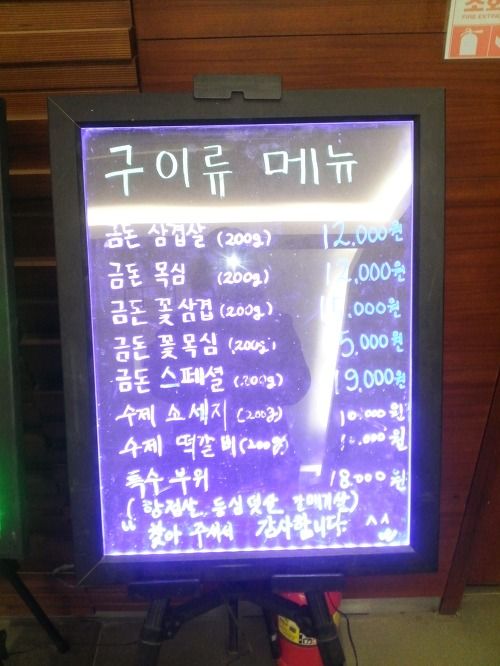 소화
FIRE EXTIN
구이류 메뉴
금돈 삼겹살 (200g) 12,000원
금돈 목심 (200g) 12,000원
금돈 꽃삼겹 (200g) ,000원
금돈 꽃목심 (200g) 5,000원
금돈 스페셜 (200g) 19,000원
수제 소세지 (200g) 10,000원
수제 떡갈비 (200g) ,000원
특수부위 18,000원
(항정살 등심덧살 갈매기살)
찾아 주셔서 감사합니다. ^^